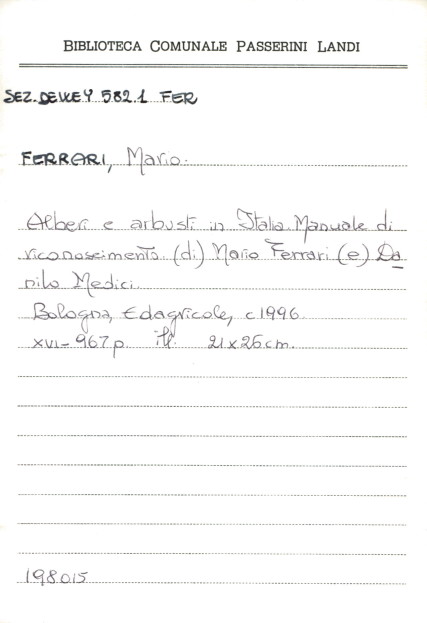 BIBLIOTECA COMUNALE PASSERINI LANDI
SEZ. DEWEY 582.1 FER
FERRARI, Mario.
Alberi e arbusti in Italia. Manuale di
riconoscimento. (di) Mario Ferrari (e) Da
nilo Medici.
Bologna, Edagricole, c1996.
XVI-967 p. ill. 21x26 cm.
198015